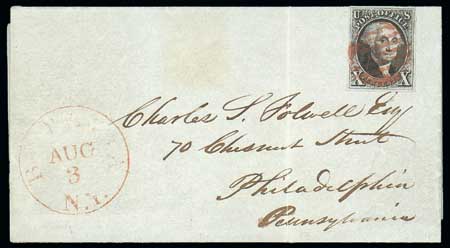 U S
POST OFFICE
X X
Charles S. Folwell Esq
70 Chesnut Street
Philadelphia
Pennsylvania
AUG
3
N.Y.